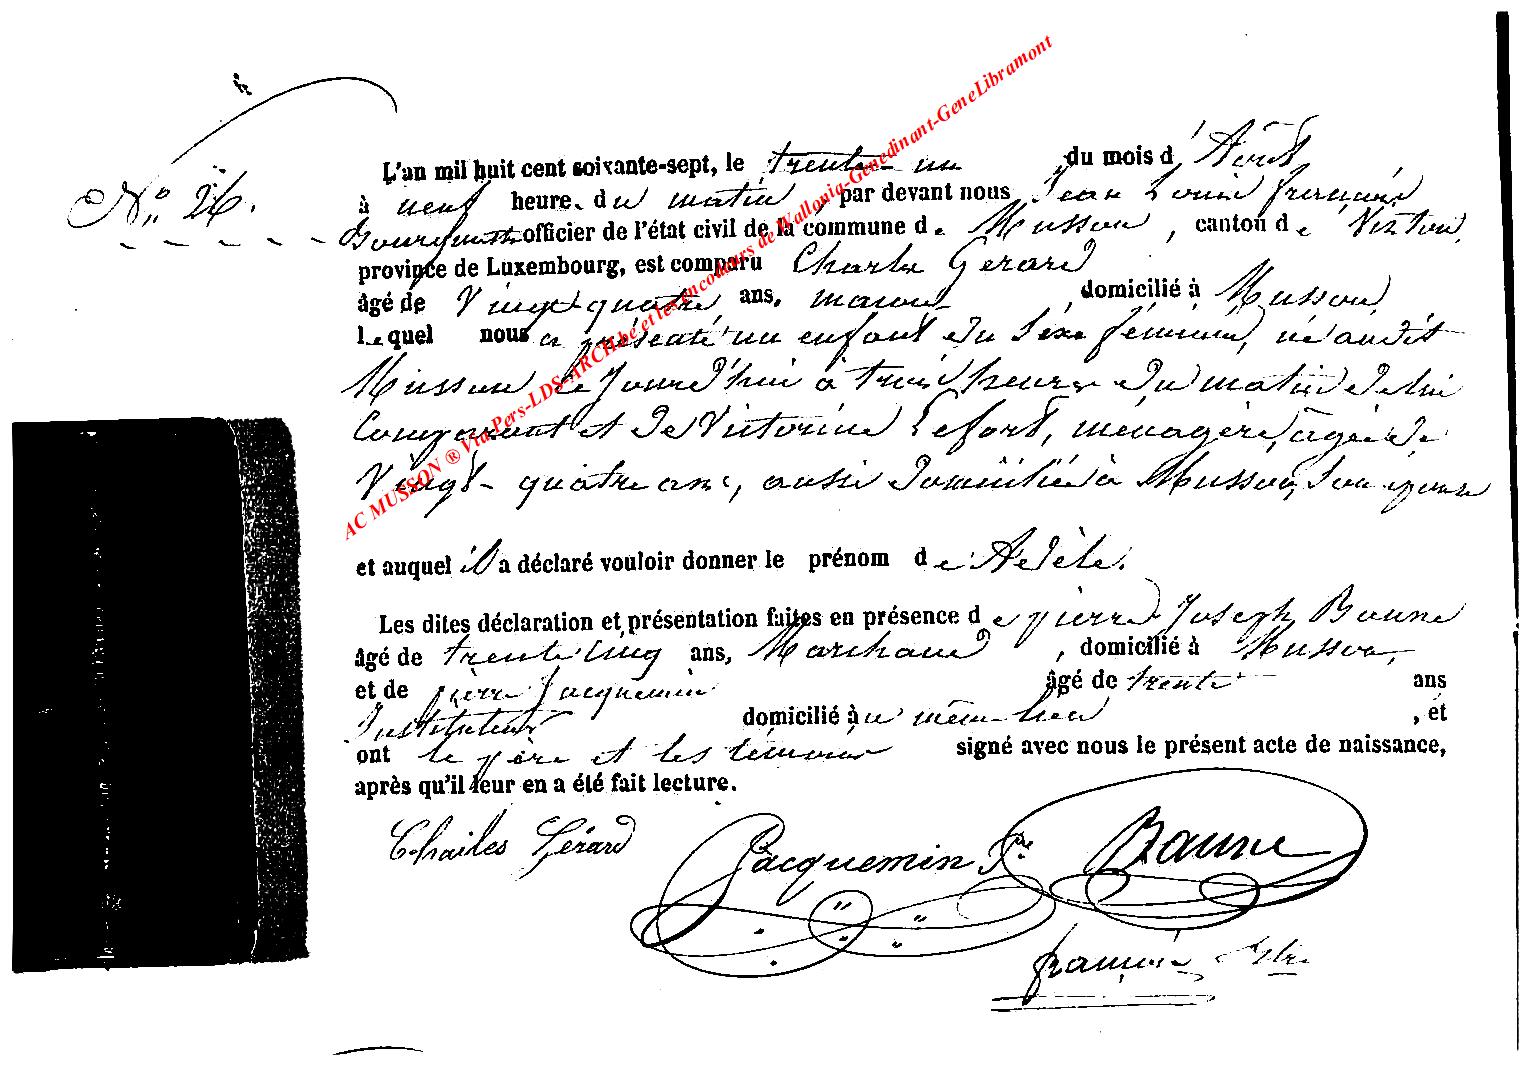 L'an mil huit cent soixante-sept, le trente-un du mois d'Août
N° 26.
à neuf heure. du matin, par devant nous Jean Louis françois
Bourgmestre officier de l'état civil de la commune de Musson, canton de Virton,
province de Luxembourg, est comparu Charles Gérard
âgé de Vingt-quatre ans, maçon domicilié à Musson,
lequel nous a présenté un enfant du sexe féminin, né audit
Musson ce jourd'hui à trois heures du matin de lui
Comparant et de Victorine Lefort, ménagère, agée de
Vingt-quatre ans, aussi domiciliée à Musson, son épouse
et auquel il a déclaré vouloir donner le prénom de Adèle.
Les dites déclaration et présentation faites en présence de pierre Joseph Baune
âgé de trente cinq ans, Marchand, domicilié à Musson,
et de pierre Jacquemin âgé de trente ans
Instituteur domicilié au même lieu, et
ont le père et les témoins signé avec nous le présent acte de naissance,
après qu'il leur en a été fait lecture.
Charles Gérard
Jacquemin Pre
Baune
françois
AC MUSSON ® Via Pers-LDS-ARCH.be et les encodeurs de Wallonia-Genedinant-GeneLibramont